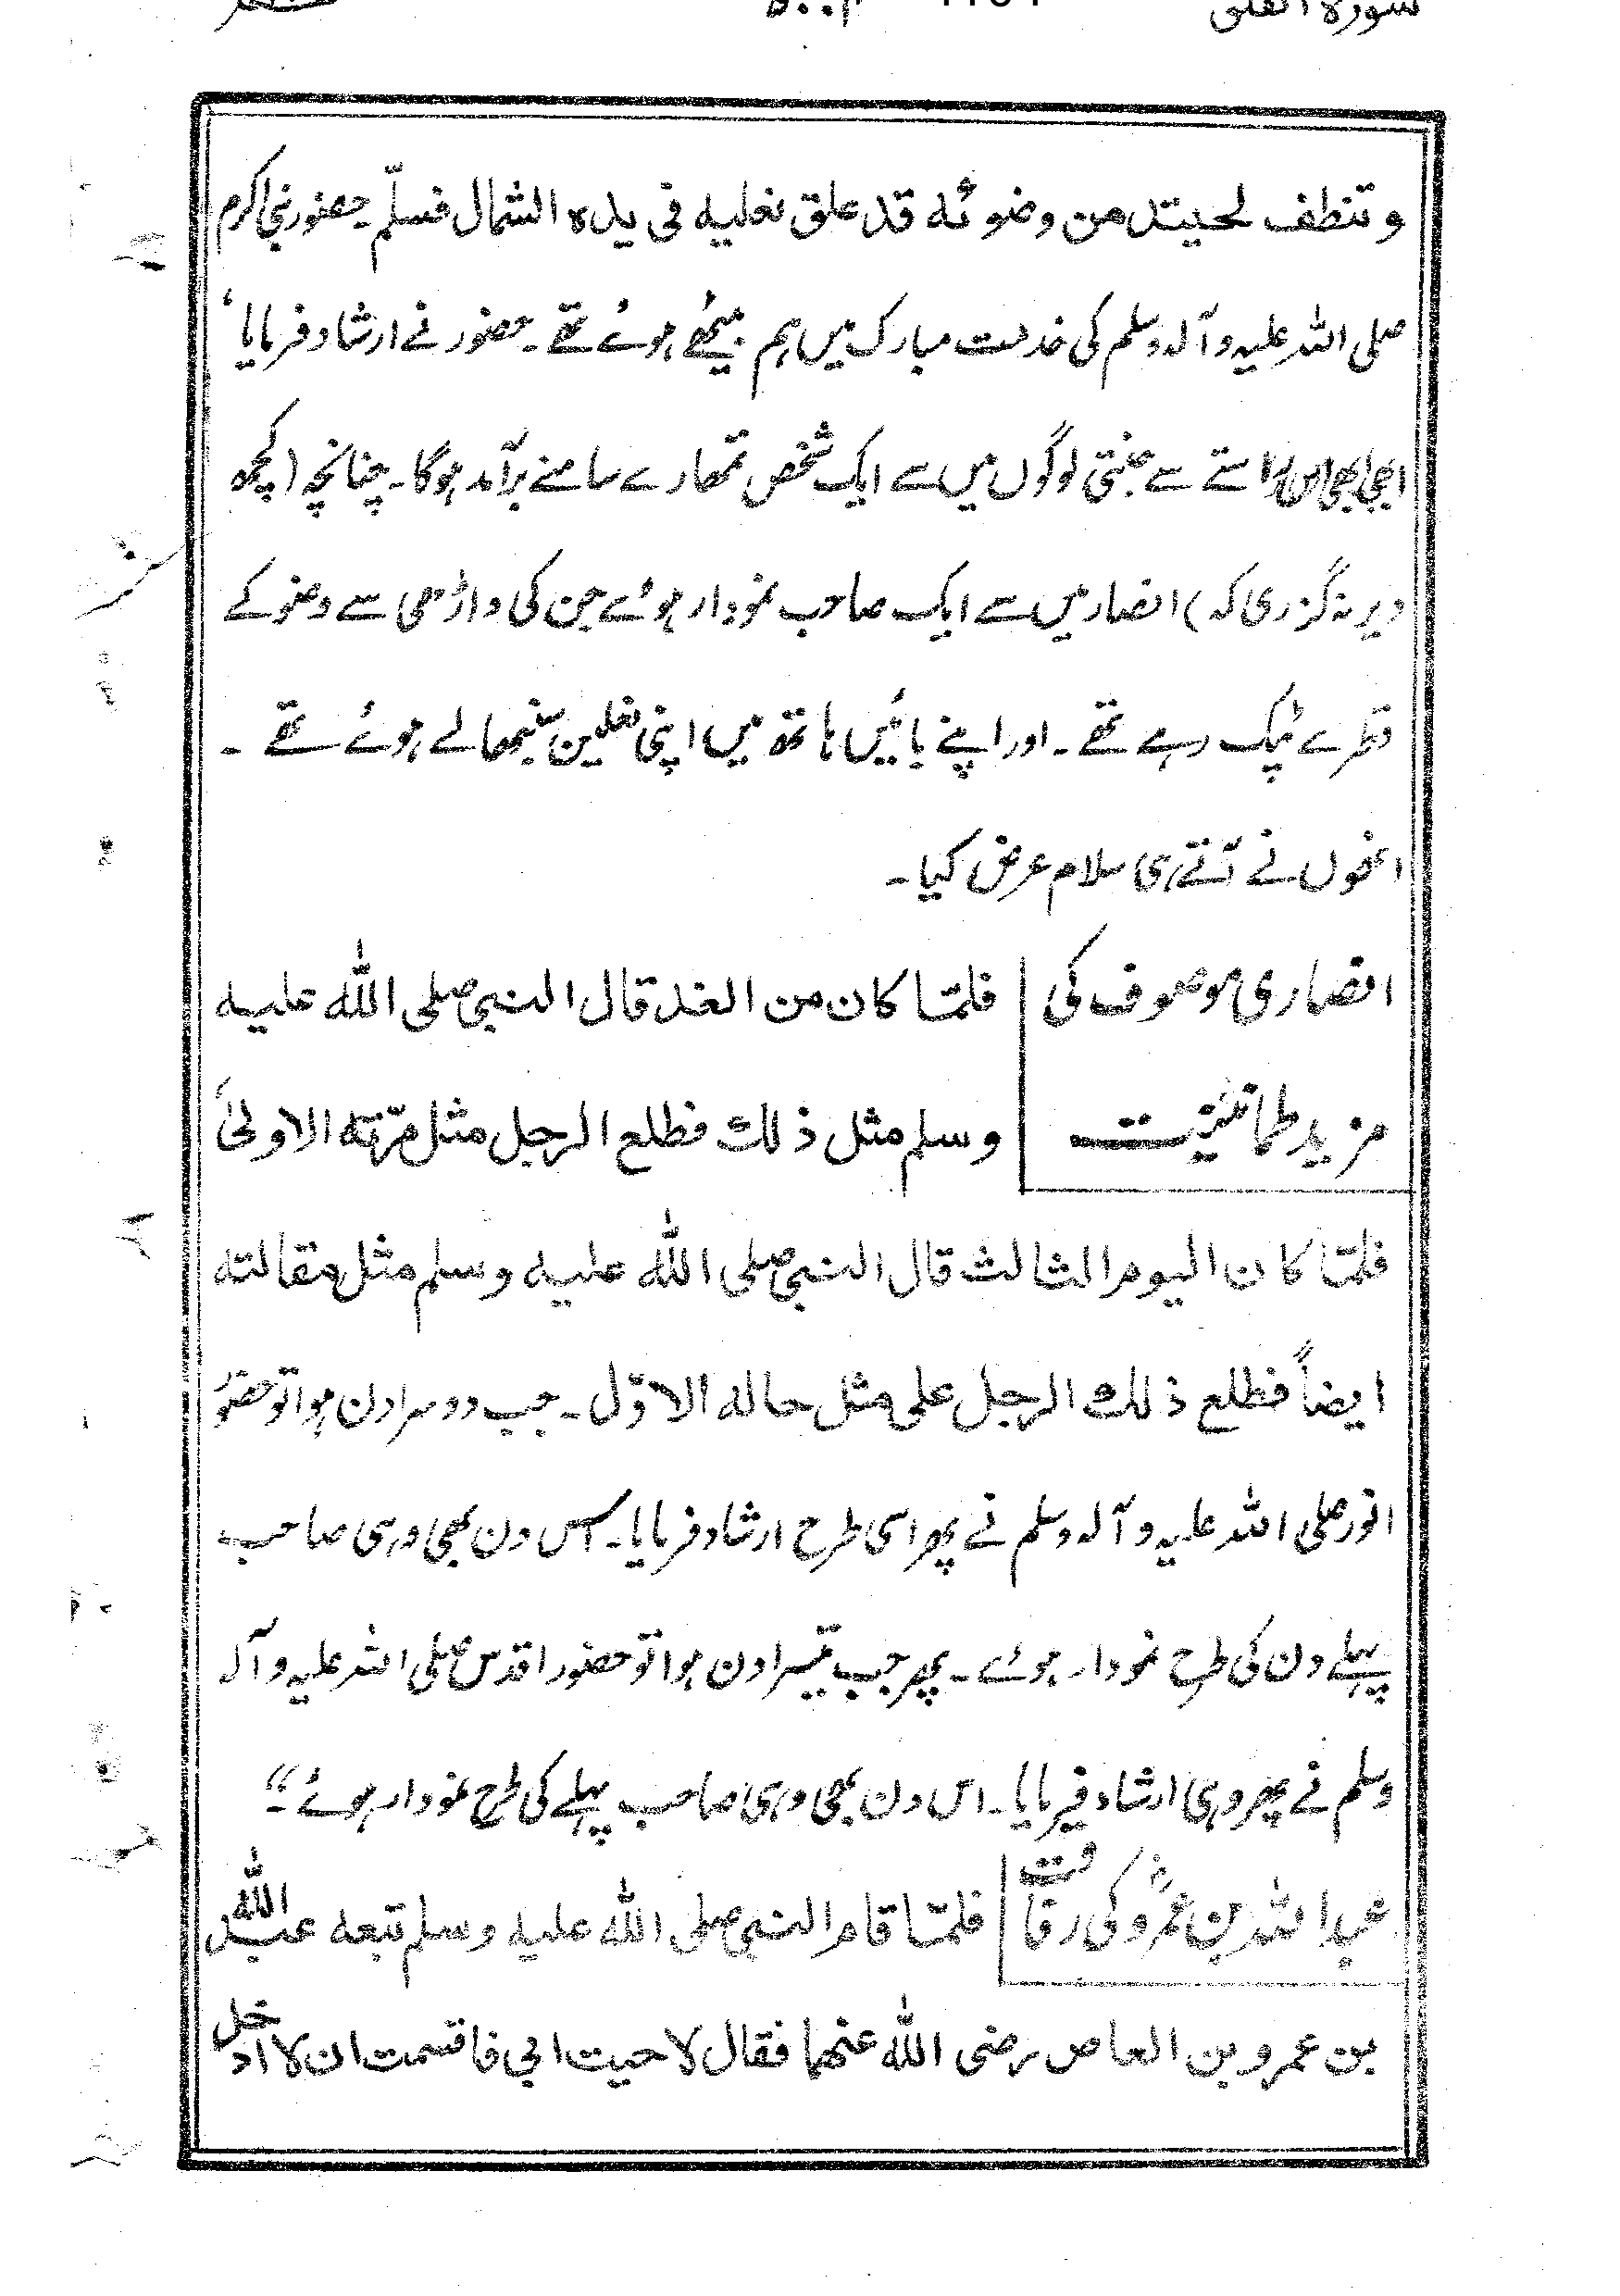 سورۃ الفلق
وتنطف لحیتہ من وضوئہ قد علق نعلیہ فی یدہ الشمال فسلّم۔ حضور نبی اکرم
صلی اللہ علیہ وآلہ وسلم کی خدمت مبارک میں ہم بیٹھے ہوئے تھے۔ حضور نے ارشاد فرمایا،
ابھی ابھی اس راستے سے جنتی لوگوں میں سے ایک شخص تمھارے سامنے برآمد ہوگا۔ چنانچہ (کچھ
دیر نہ گزری کہ) انصار میں سے ایک صاحب نمودار ہوئے جن کی داڑھی سے وضو کے
قطرے ٹپک رہے تھے۔ اور اپنے بائیں ہاتھ میں اپنی نعلین سنبھالے ہوئے تھے۔
انھوں نے آتے ہی سلام عرض کیا۔
انصاری موصوف کی
مزید طمانیت
فلمّا کان من الغد قال النبی صلی اللہ علیہ
وسلم مثل ذلک فطلع الرجل مثل مرّتہ الاولیٰ
فلمّا کان الیوم الثالث قال النبی صلی اللہ علیہ وسلم مثل مقالتہ
ایضاً فطلع ذلک الرجل علی مثل حالہ الاوّل۔ جب دوسرا دن ہوا تو حضورِ
انور صلی اللہ علیہ وآلہ وسلم نے پھر اسی طرح ارشاد فرمایا۔ اس دن بھی وہی صاحب
پہلے دن کی طرح نمودار ہوئے۔ پھر جب تیسرا دن ہوا تو حضور اقدس صلی اللہ علیہ وآلہ
وسلم نے پھر وہی ارشاد فرمایا۔ اس دن بھی وہی صاحب پہلے کی طرح نمودار ہوئے۔“
عبداللہ بن عمروؓ کی رفاقت
فلمّا قام النبی صلی اللہ علیہ وسلم تبعہ عبد اللہ
بن عمرو بن العاص رضی اللہ عنھما فقال لاحیت ابی فاقسمت ان لا ادخل